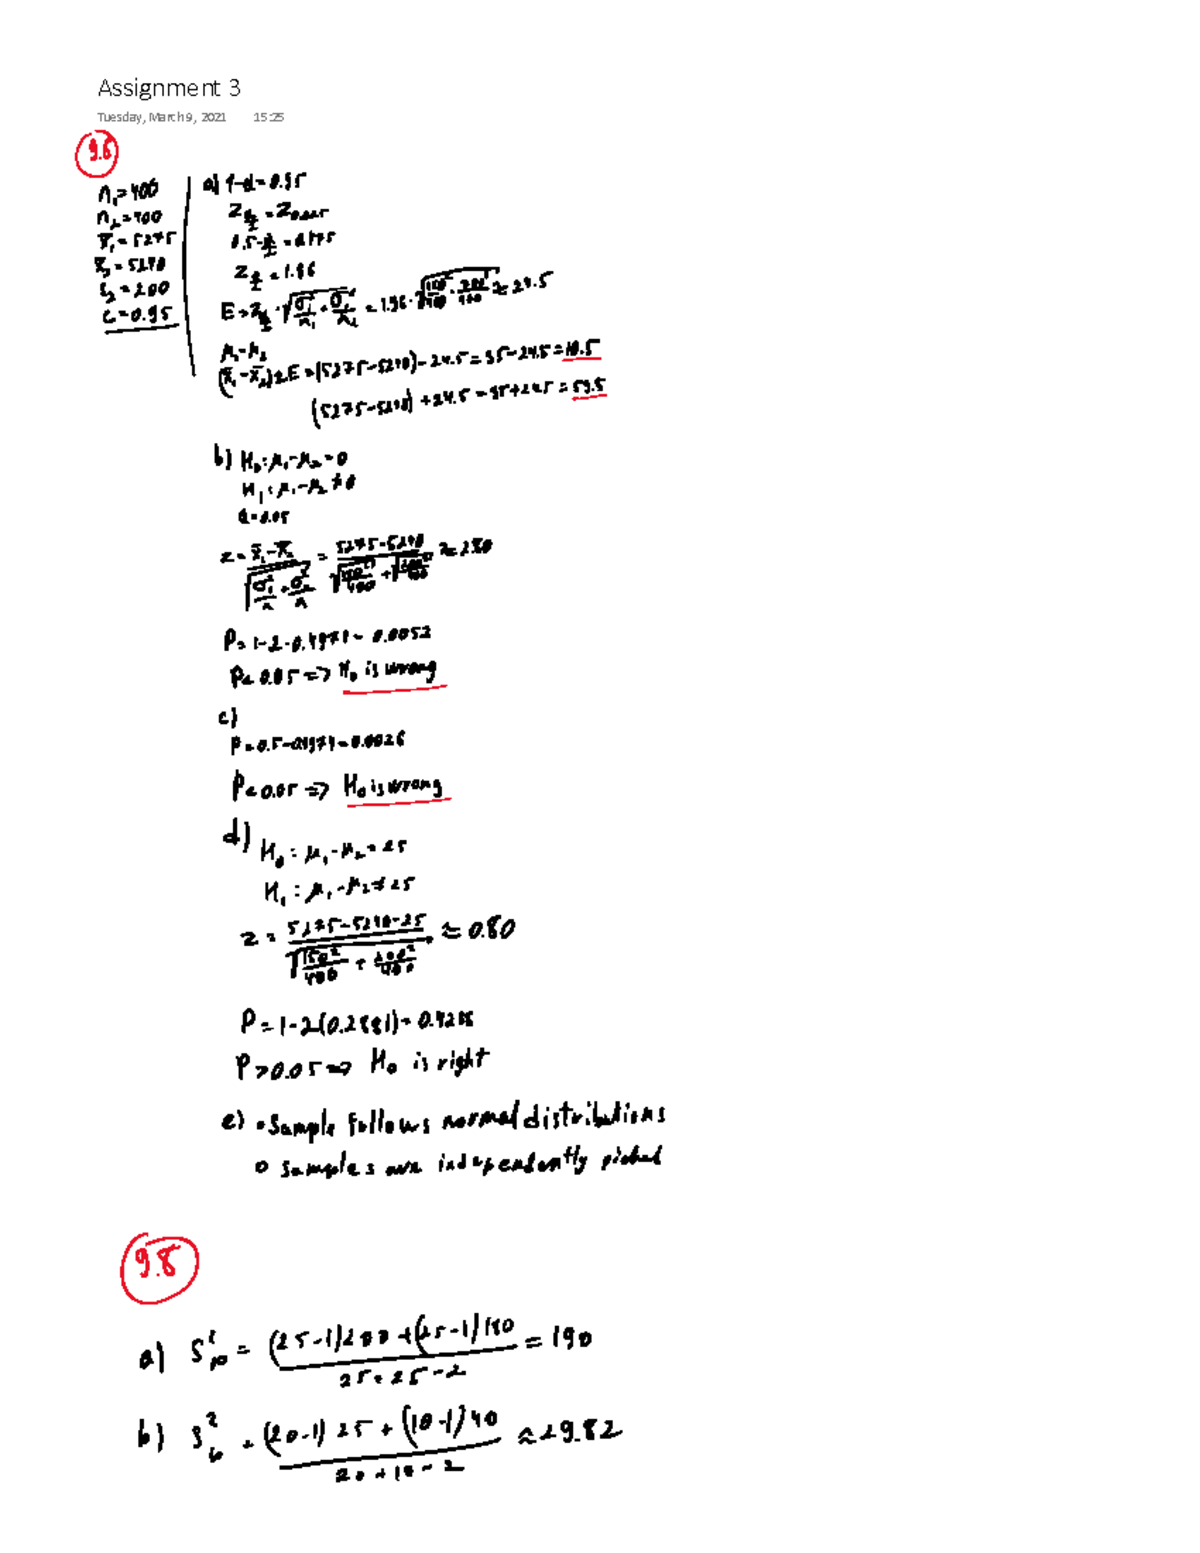 Assignment 3
Tuesday, March 9, 2021 15:25
9.6
n₁=400
n₂=400
x̄₁=5275
x̄₂=5240
s₂=200
c=0.95
a) 1-α=0.95
Z_α/2 = Z_0.025
0.5-α/2=0.475
Z_α/2=1.96
E=Z_α/2·√(σ₁²/n₁+σ₂²/n₂)=1.96·√(150²/400+200²/400)≈24.5
μ₁-μ₂
(x̄₁-x̄₂)±E=(5275-5240)-24.5=35-24.5=10.5
(5275-5240)+24.5=35+24.5=59.5
b) H₀:μ₁-μ₂=0
H₁:μ₁-μ₂≠0
α=0.05
z=(x̄₁-x̄₂)/√(σ₁²/n+σ₂²/n)=(5275-5240)/(√(150²/400)+√(200²/400))≈2.80
P=1-2·0.4974=0.0052
P<0.05=>H₀ is wrong
c)
P=0.5-0.4974=0.0026
P<0.05=>H₀ is wrong
d) H₀:μ₁-μ₂=25
H₁:μ₁-μ₂≠25
z=(5275-5240-25)/√(150²/400+200²/400)≈0.80
P=1-2(0.2881)=0.4238
P>0.05=>H₀ is right
e) •Sample follows normal distributions
o samples are independently picked
9.8
a) S²p=((25-1)200+(25-1)180)/(25+25-2)=190
b) S²=((20-1)25+(10-1)40)/(20+10-2)≈29.82